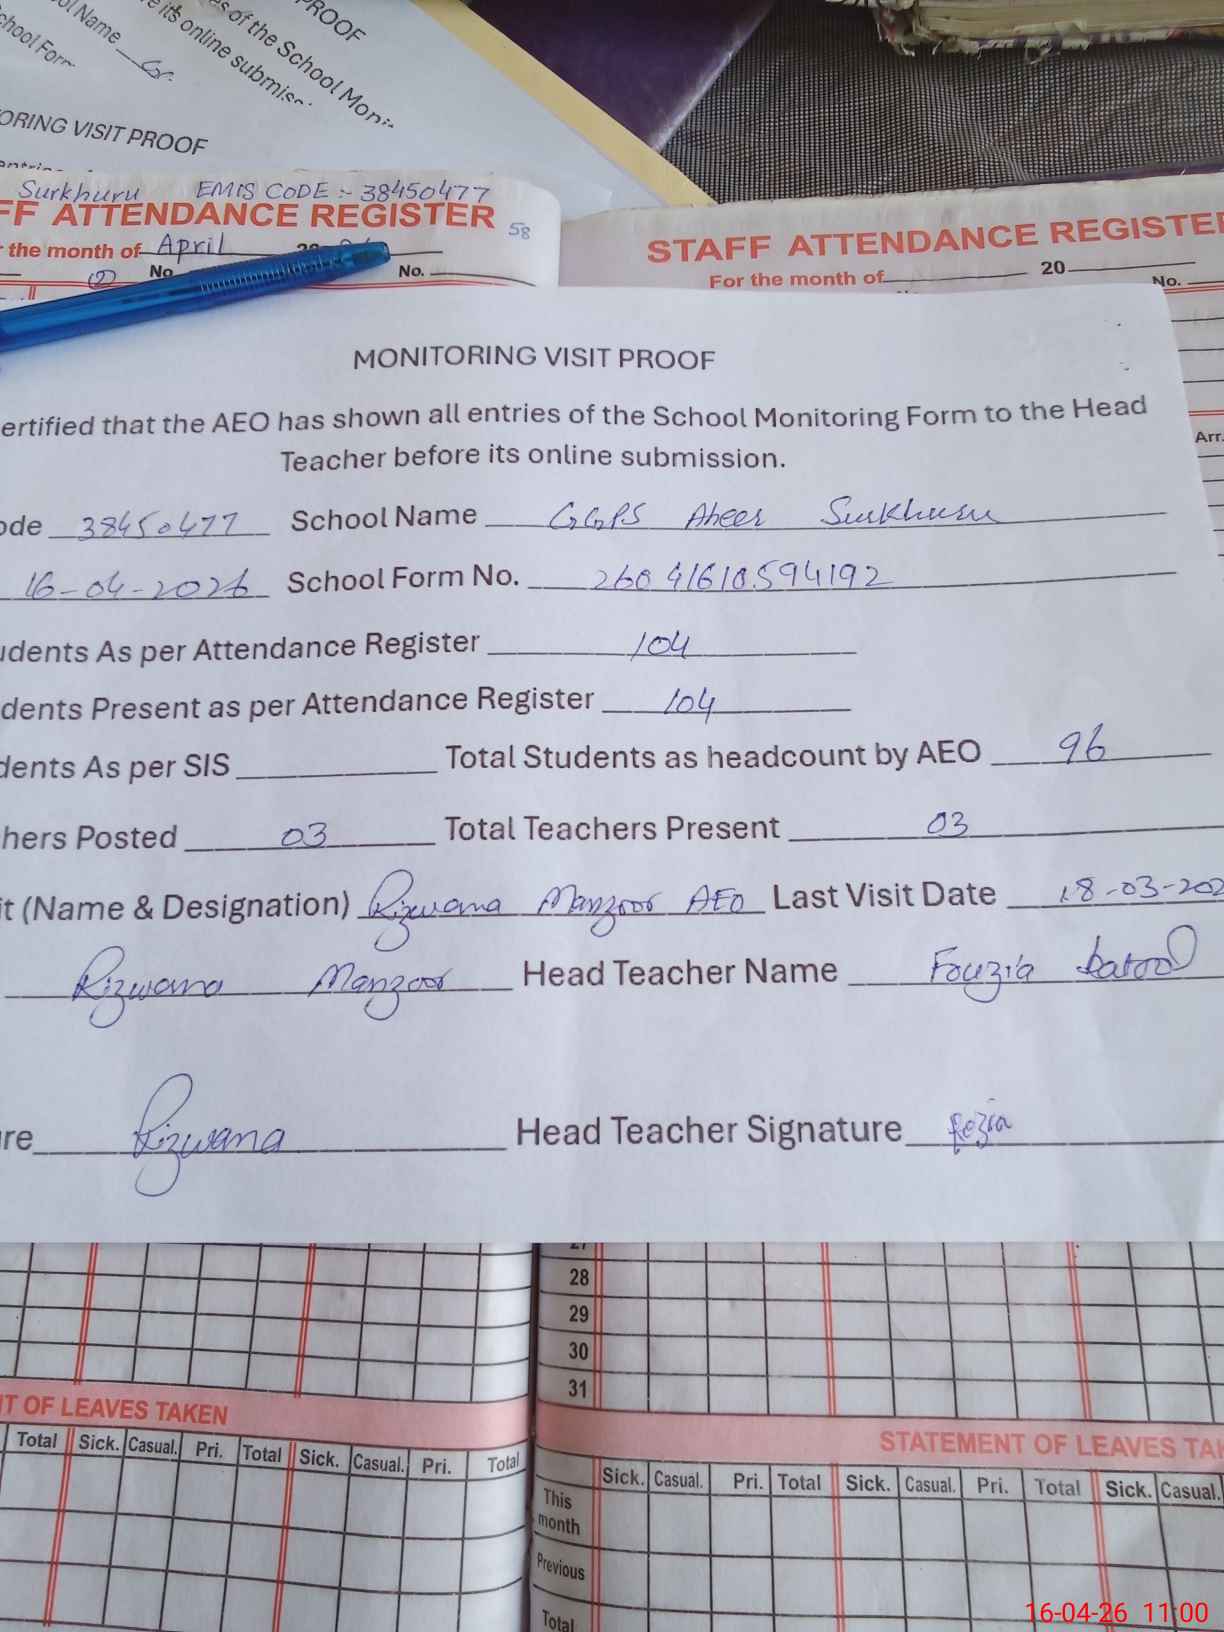 PROOF
s of the School Moni
e its online submiss
ol Name
chool Form
ORING VISIT PROOF
Surkhuru EMIS CODE :- 38450477
FF ATTENDANCE REGISTER
58
r the month of April 20
No. No.
STAFF ATTENDANCE REGISTER
For the month of 20
No.
MONITORING VISIT PROOF
ertified that the AEO has shown all entries of the School Monitoring Form to the Head
Teacher before its online submission.
Arr.
ode 38450477 School Name GGPS Aheer Surkhuru
16-04-2026 School Form No. 26041610594192
udents As per Attendance Register 104
dents Present as per Attendance Register 104
dents As per SIS Total Students as headcount by AEO 96
hers Posted 03 Total Teachers Present 03
it (Name & Designation) Rizwana Manzoor AEO Last Visit Date 18-03-202
Rizwana Manzoor Head Teacher Name Fouzia batool
re Rizwana Head Teacher Signature
27
28
29
30
31
T OF LEAVES TAKEN
Total Sick. Casual. Pri. Total Sick. Casual. Pri. Total
STATEMENT OF LEAVES TA
Sick. Casual. Pri. Total Sick. Casual. Pri. Total Sick. Casual.
This
month
Previous
Total
16-04-26 11:00